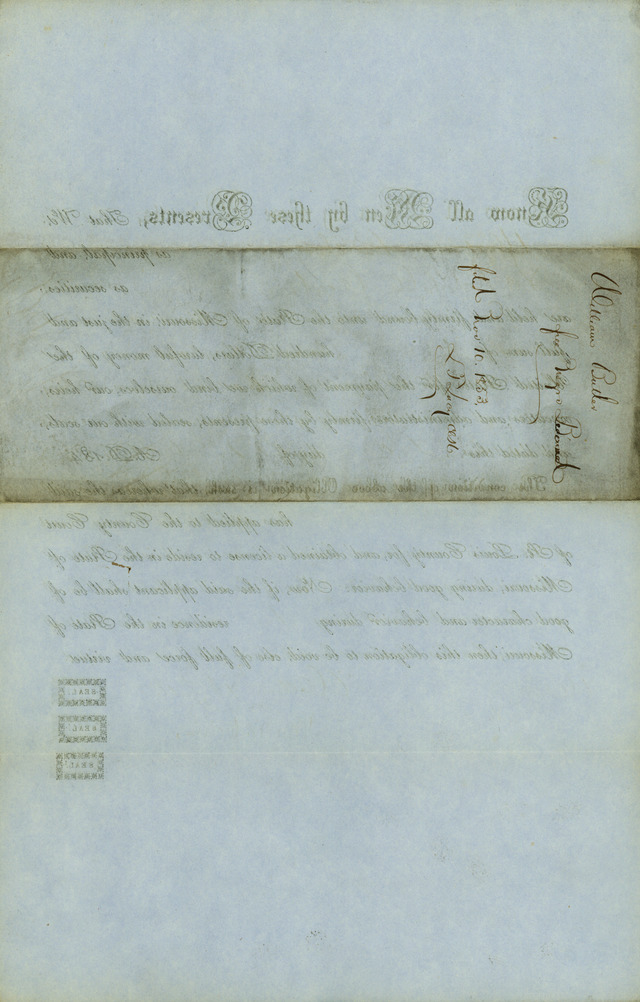 Know all Men by these Presents, That We,
as principal, and
as securities:
are held & firmly bound unto the State of Missouri, in the just and
hundred Dollars, lawful money of the
for the payment of which we bind ourselves, our heirs,
and administrators, firmly by these presents, sealed with our seals,
dated this day of A.D. 184
The condition of the above Obligation is such, that whereas the said
has applied to the County Court
of St. Louis County for, and obtained a license to reside in the State of
Missouri, during good behavior: Now, if the said applicant shall be of
good character and behavior during residence in the State of
Missouri, then this obligation to be void, else of full force and virtue
SEAL.
SEAL
SEAL
William
free Negro